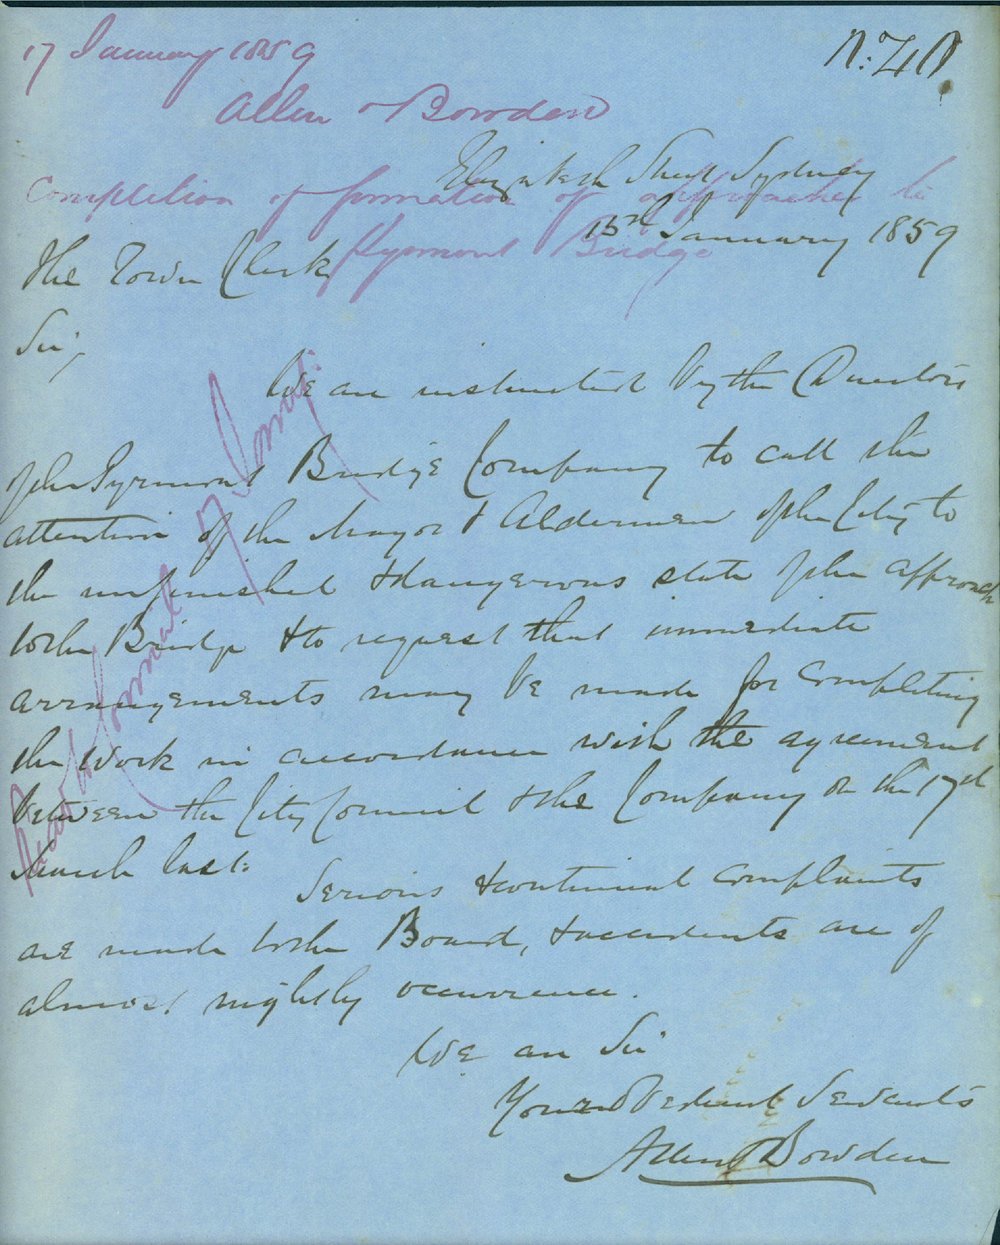 17 January 1859
No: 40
Allen & Bowden
Completion of formation of approaches to
Pyrmont Bridge
Elizabeth Street Sydney
15th January 1859
The Town Clerk
Sir,
We are instructed by the Directors
of the Pyrmont Bridge Company to call the
attention of the Mayor & Aldermen of the City to
the unfinished & dangerous state of the approach
to the Bridge & to request that immediate
arrangements may be made for completing
the work in accordance with the agreement
between the City Council & the Company on the 17th
March last.
Serious & continual complaints
are made to the Board, & accidents are of
almost nightly occurrence.
We are Sir
Your Obedient Servants
Allen & Bowden
Council 17 January